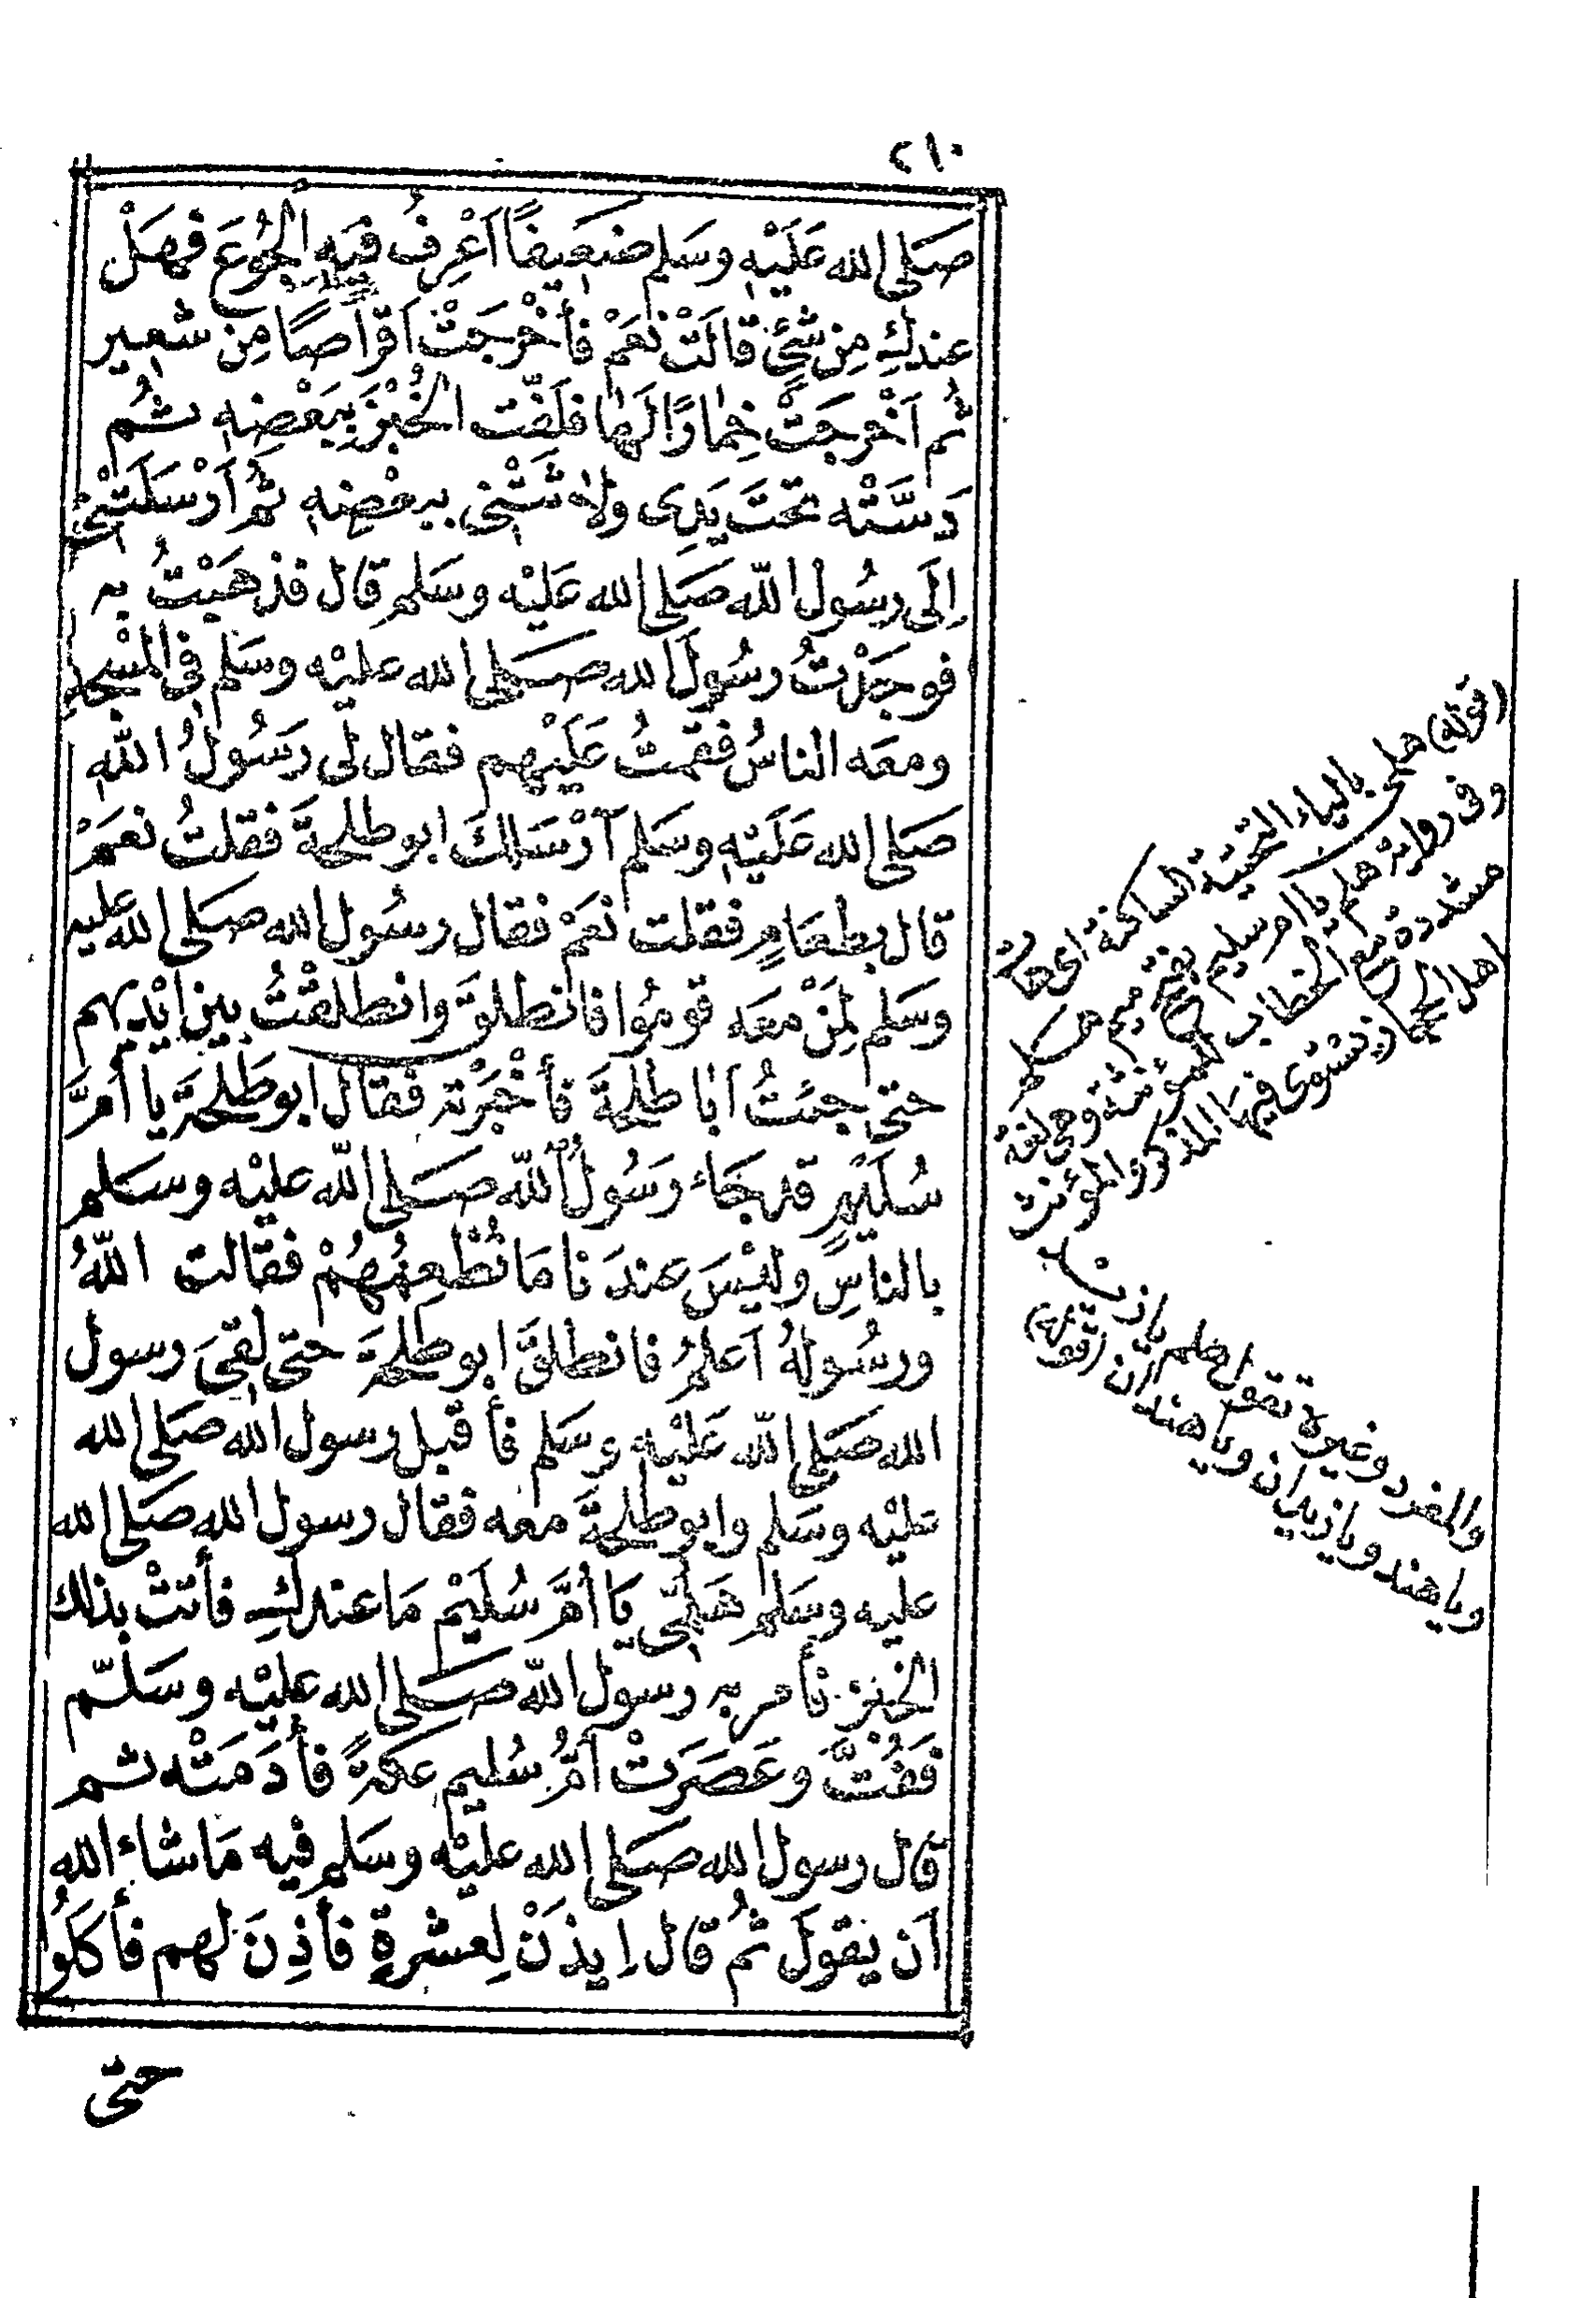 ٢١٠
صَلى الله عَلَيْهِ وسَلم ضَعِيفًا اَعْرِفُ فيهِ الجُوعَ فهَلْ
عندكِ مِن شَيْءٍ قالَتْ نعَمْ فأخْرجَتْ اَقراصًا مِن شعير
ثُم اَخْرجَتْ خِمارًا لَها فلَفّت الخُبْزَ بِبَعْضِهِ ثُم
دَسَّتْه تحتَ يَدِى ولاثَتْنِى ببعْضِهِ ثُم اَرْسَلَتْنِى
اِلَى رسُول اللّه صَلى الله عَلَيْه وسَلم قال فذهَبْتُ به
فوجَدْتُ رسُولَ الله صَلى الله عليْه وسَلم فى المسْجِدِ
ومعَه الناسُ فقمتُ عَلَيْهم فقال لى رَسُولُ اللّهِ
صَلى الله عَلَيْهِ وسَلم آرْسَلكَ ابوطلحةَ فقلتُ نعَمْ
قال بطعَامٍ فقلت نعَمْ فقال رسُول الله صَلى الله عليه
وسَلم لِمَنْ معَه قومُوا فانطلقَ وانطلقْتُ بين اَيْديهم
حتى جئتُ اَبا طلحةَ فأخْبَرْته فقال ابوطَلحةَ يا أمَّ
سُلَيْمٍ قد جَاء رَسُولُ اللّه صَلى اللّه عليْه وسَلم
بالناسِ وليْسَ عندَنا مَا نُطْعِمُهُمْ فقالت اللّهُ
ورسُولهُ اَعلمُ فانطلقَ ابوطلحة حتى لقىَ رسول
الله صَلى اللّه عَلَيْهِ وسَلم فأقبل رسول الله صَلى الله
عليْه وسَلم وابوطلحةَ معه فقال رسول الله صَلى الله
عليه وسَلم هَلُمِّى يَا اُمَّ سُلَيْم مَا عندكِ فأتتْ بذلك
الخبز فأمر به رسول اللّه صَلى الله عليْه وسَلّم
فَفُتَّ وعَصَرَتْ اُمُّ سُليم عكةً فأدَمَتْه ثم
قال رسول الله صَلى الله عليْه وسَلم فيه مَا شاء الله
اَن يقولَ ثُم قال اِيذَنْ لِعشرةٍ فأذِنَ لهم فأكَلُوا
حتى
(قوله) هلمى بالياء التحتية الساكنة اى هات
وفى رواية هلم يا ام سليم بفتح ميم هلم
مشددة مع الخطاب للمؤنثة وهى لغة
اهل الحجاز يستوى فيها المذكر والمؤنث
والمفرد وغيره تقول هلم يا زيد
ويا هند ويا زيدان ويا هندان (قوله)